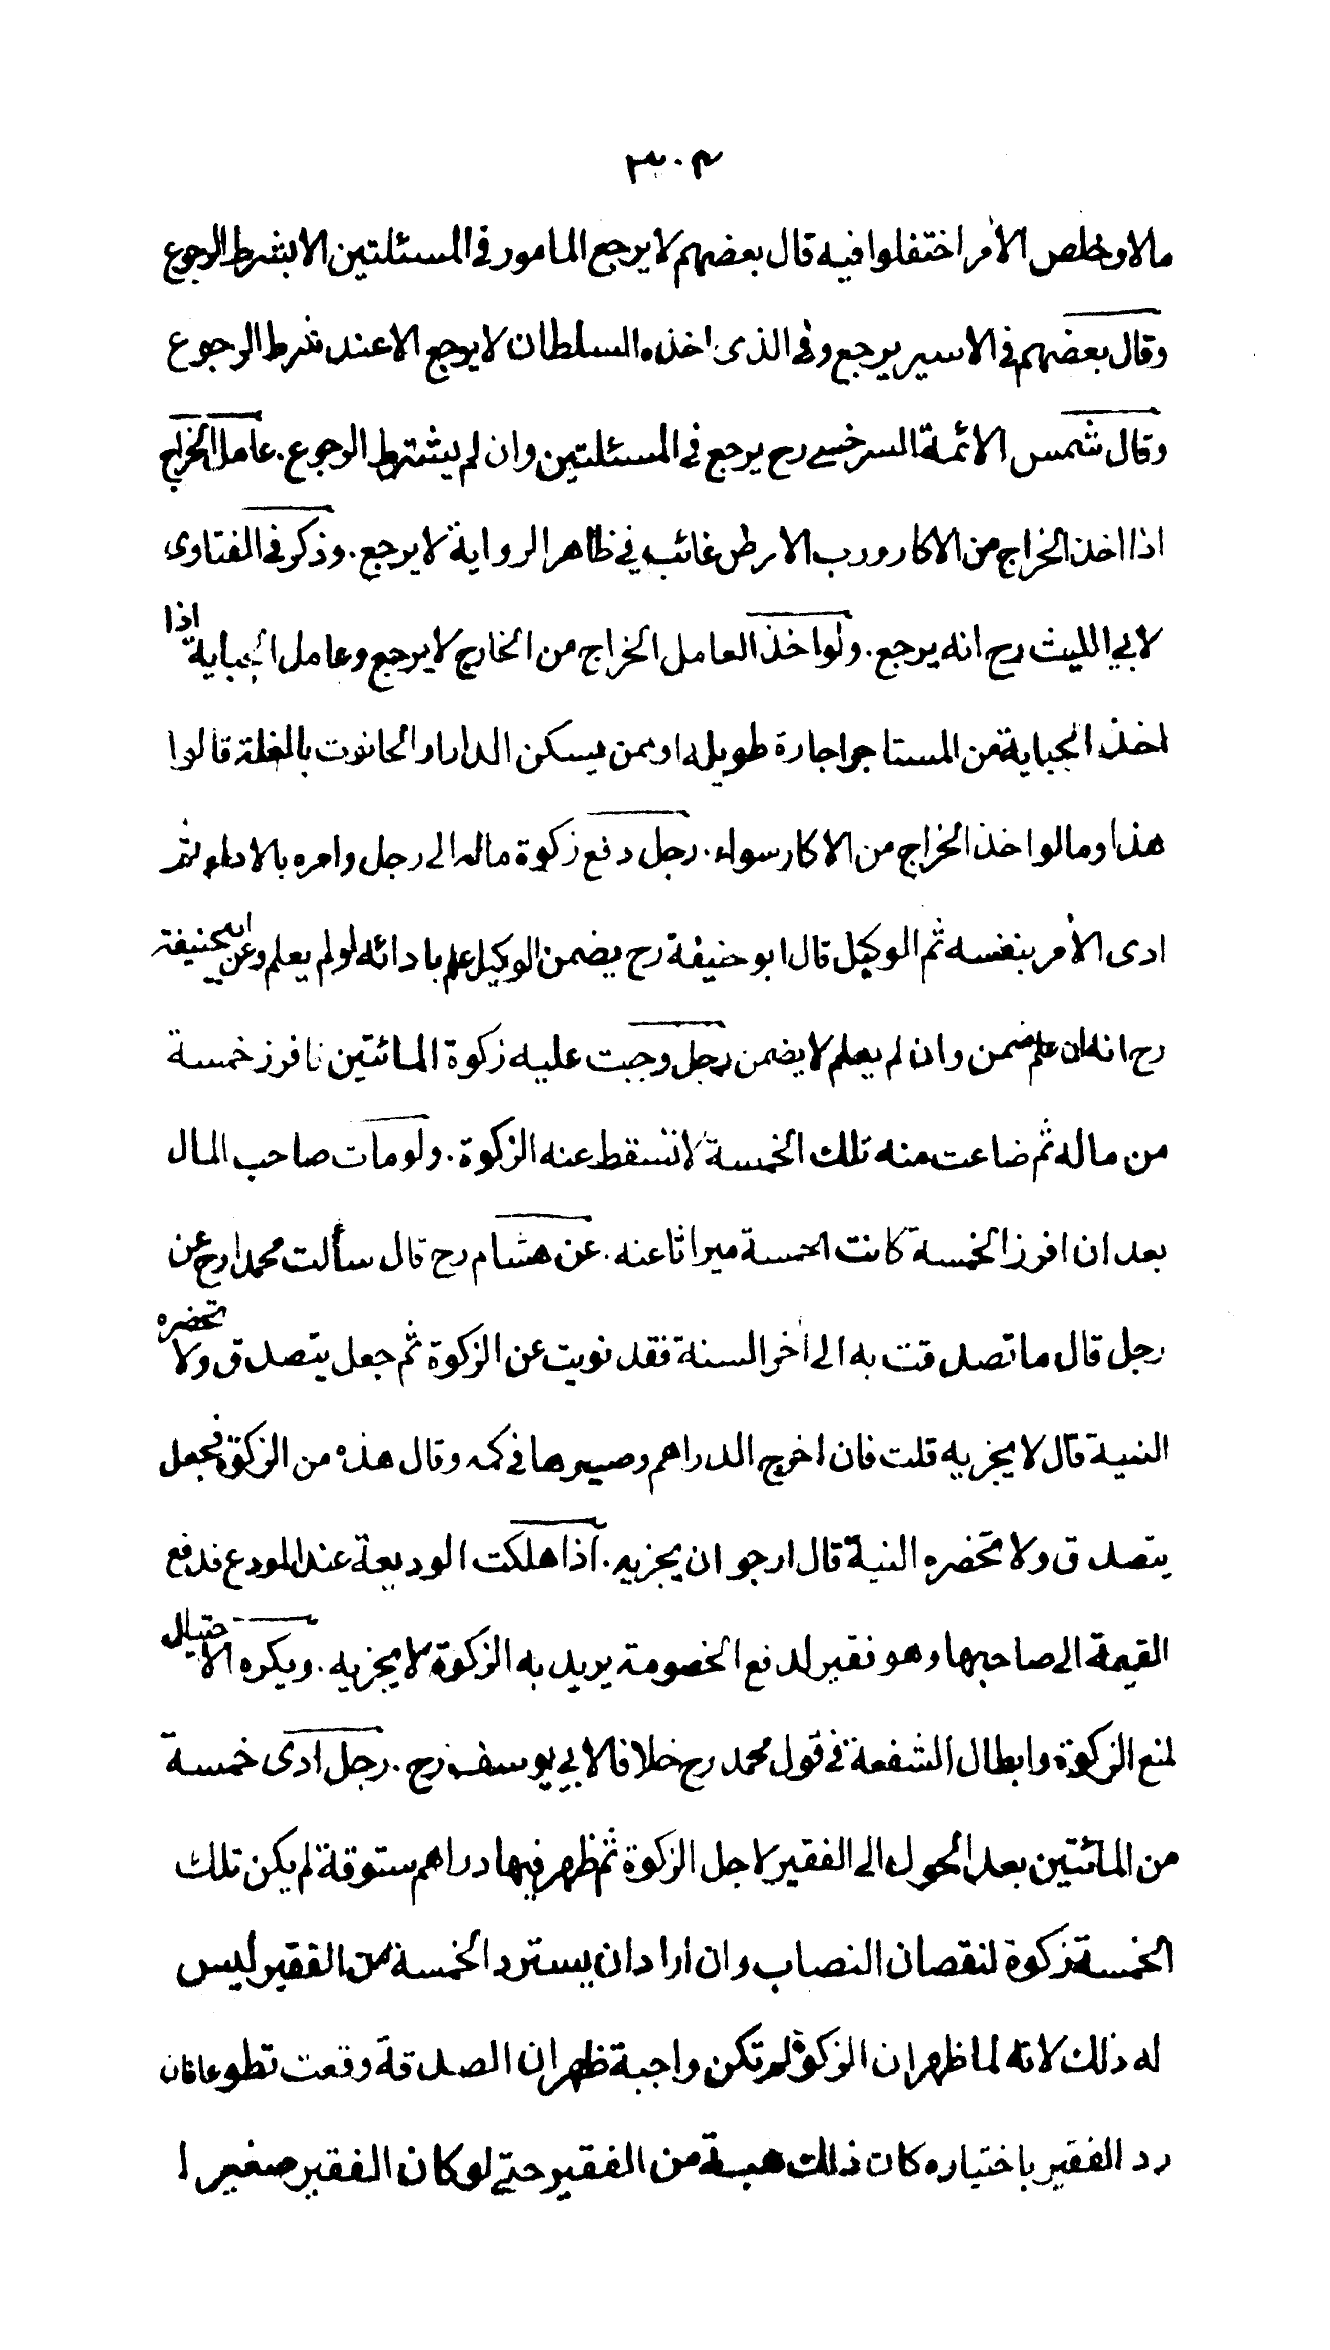 ٣٠٣
مالا وخلص الأمر اختفلوا فيه قال بعضهم لا يرجع المامور في المسئلتين الا بشرط الرجوع
وقال بعضهم في الاسير يرجع وفي الذى اخذه السلطان لا يرجع الا عند شرط الرجوع
وقال شمس الائمة السرخسي رح يرجع في المسئلتين وان لم يشترط الرجوع . عامل الخراج
اذا اخذ الخراج من الاكار ورب الارض غائب في ظاهر الرواية لا يرجع . وذكر في الفتاوى
لابي الليث رح انه يرجع . ولو اخذ العامل الخراج من الخارج لا يرجع وعامل الجباية اذا
اخذ الجباية من المستاجر اجارة طويلة او ممن يسكن الدار او الحانوت بالغلة قالوا
هذا وما لو اخذ الخراج من الاكار سواء . رجل دفع زكوة ماله الى رجل وامره بالاداء ثم
ادى الأمر بنفسه ثم الوكيل قال ابو حنيفة رح يضمن الوكيل علم بادائه او لم يعلم وعن ابي حنيفة
رح انه ان علم ضمن وان لم يعلم لا يضمن رجل وجبت عليه زكوة المائتين فافرز خمسة
من ماله ثم ضاعت منه تلك الخمسة لا تسقط عنه الزكوة . ولو مات صاحب المال
بعد ان افرز الخمسة كانت الخمسة ميراثا عنه . عن هشام رح قال سألت محمدا رح عن
رجل قال ما تصدقت به الى أخر السنة فقد نويت عن الزكوة ثم جعل يتصدق ولا تحضره
النية قال لا يجزيه قلت فان اخرج الدراهم وصيرها في كمه وقال هذه من الزكوة فجعل
يتصدق ولا تحضره النية قال ارجو ان يجزيه . اذا هلكت الوديعة عند المودع فدفع
القيمة الى صاحبها وهو فقير لدفع الخصومة يريد به الزكوة لا يجزيه . ويكره الاحتيال
لمنع الزكوة وابطال الشفعة في قول محمد رح خلافا لابي يوسف رح . رجل ادى خمسة
من المائتين بعد الحول الى الفقير لاجل الزكوة ثم ظهر فيها دراهم ستوقة لم يكن تلك
الخمسة زكوة لنقصان النصاب وان اراد ان يسترد الخمسة من الفقير ليس
له ذلك لانه لما ظهر ان الزكوة لم تكن واجبة ظهر ان الصدقة وقعت تطوعا فان
رد الفقير باختياره كان ذلك هبة من الفقير حتى لو كان الفقير صغيرا